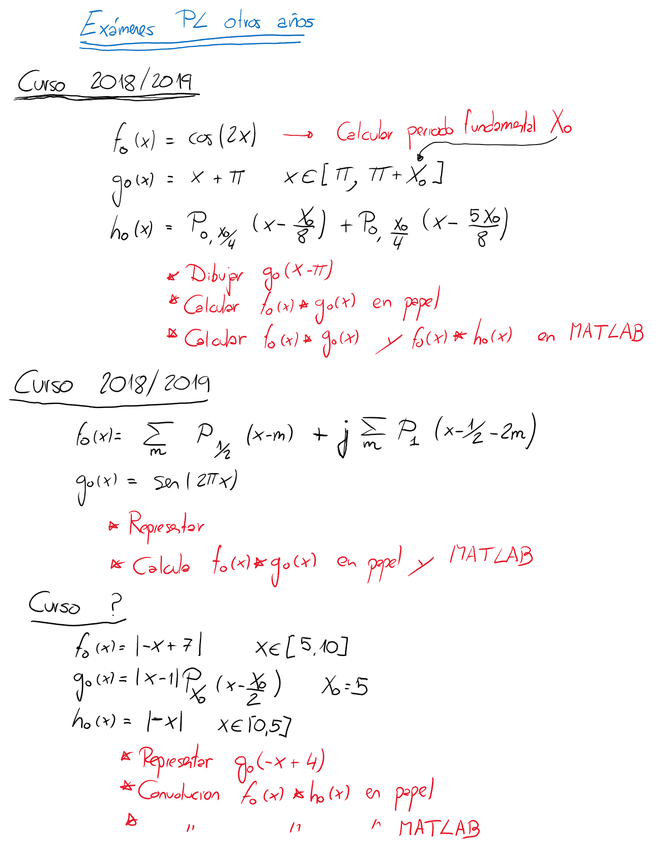 Exámenes PL otros años
Curso 2018/2019
f₀(x) = cos(2x) → Calcular periodo fundamental X₀
g₀(x) = x + π x∈[π, π+X₀]
h₀(x) = P₀,X₀/4 (x-X₀/8) + P₀,X₀/4 (x-5X₀/8)
* Dibujar g₀(x-π)
* Calcular f₀(x)*g₀(x) en papel
* Calcular f₀(x)*g₀(x) y f₀(x)*h₀(x) en MATLAB
Curso 2018/2019
f₀(x)= ∑m P1/2 (x-m) + j ∑m P1 (x-1/2-2m)
g₀(x) = sen(2πx)
* Representar
* Calcula f₀(x)*g₀(x) en papel y MATLAB
Curso ?
f₀(x)= |-x+7| x∈[5,10]
g₀(x)=|x-1|PX₀ (x-X₀/2) X₀=5
h₀(x) = |-x| x∈[0,5]
* Representar g₀(-x+4)
* Convolucion f₀(x)*h₀(x) en papel
* " " " MATLAB